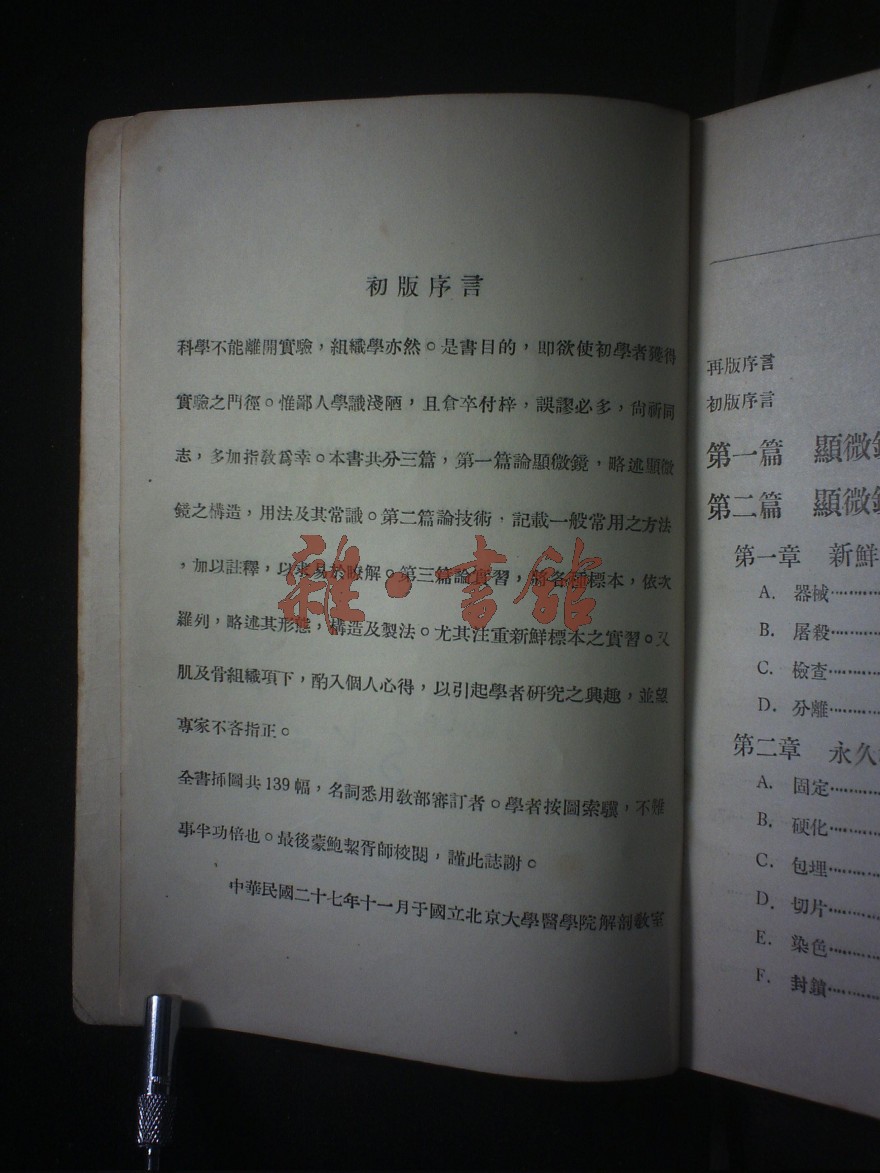 初版序言
科學不能離開實驗，組織學亦然。是書目的，即欲使初學者獲得
實驗之門徑。惟鄙人學識淺陋，且倉卒付梓，誤謬必多，尚祈同
志，多加指敎爲幸。本書共分三篇，第一篇論顯微鏡，略述顯微
鏡之構造，用法及其常識。第二篇論技術，記載一般常用之方法
，加以註釋，以求易於瞭解。第三篇論實習，將各種標本，依次
羅列，略述其形態，構造及製法。尤其注重新鮮標本之實習。又
肌及骨組織項下，酌入個人心得，以引起學者研究之興趣，並望
專家不吝指正。
全書揷圖共139幅，名詞悉用敎部審訂者。學者按圖索驥，不難
事半功倍也。最後蒙鮑鍳胥師校閱，謹此誌謝。
中華民國二十七年十一月于國立北京大學醫學院解剖敎室
雜·書館
再版序言
初版序言
第一篇 顯微鏡
第二篇 顯微鏡
第一章 新鮮
A. 器械
B. 屠殺
C. 檢查
D. 分離
第二章 永久
A. 固定
B. 硬化
C. 包埋
D. 切片
E. 染色
F. 封鎖